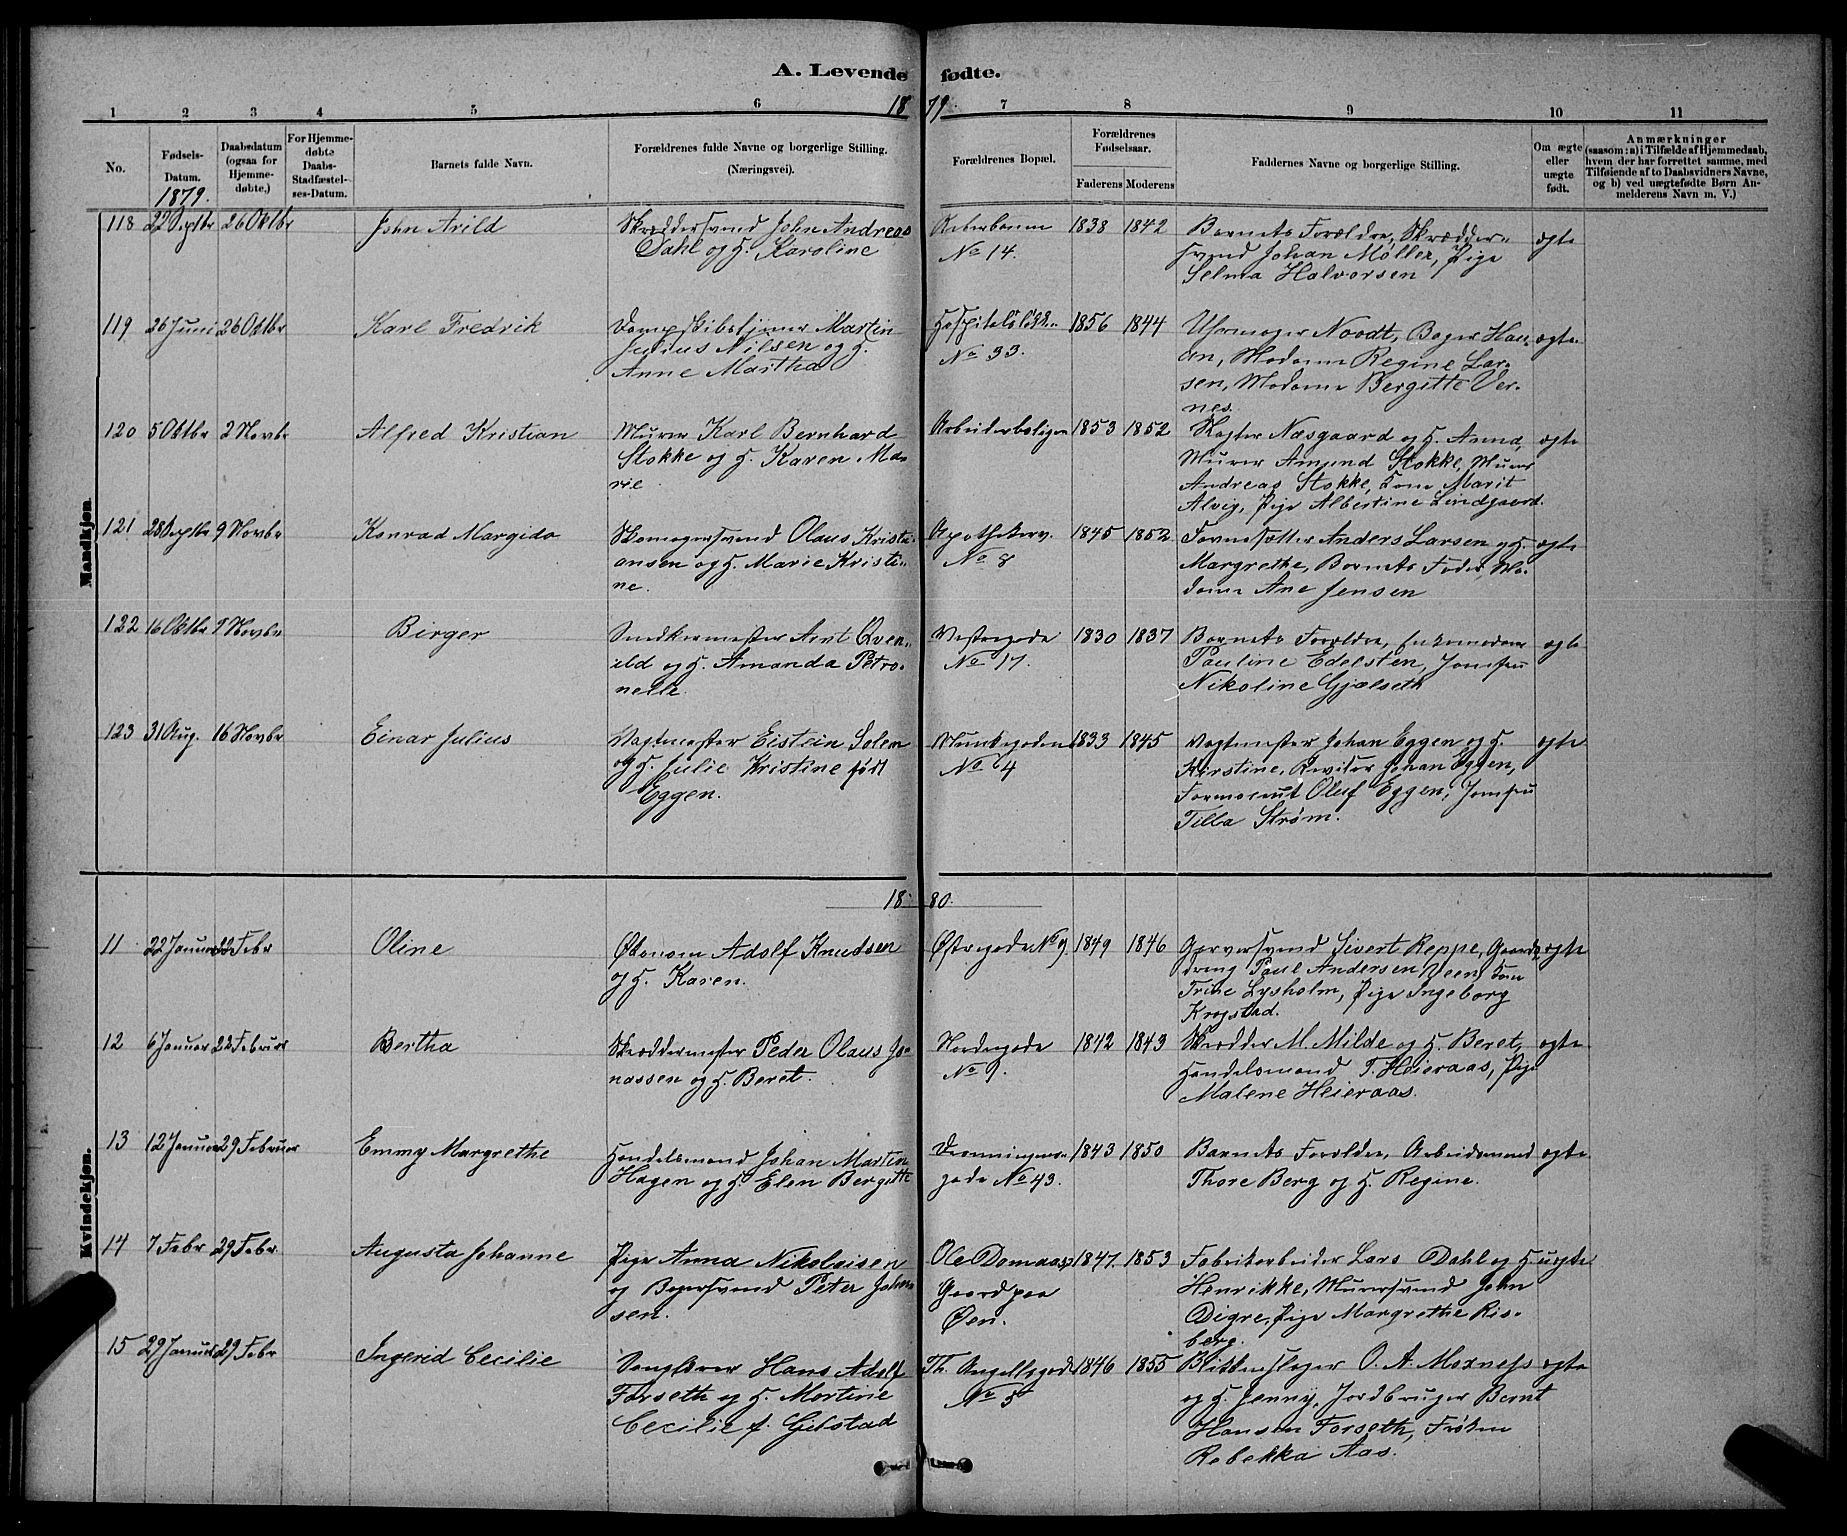 A. Levende fødte.
18 79.
1 2 3 4 5 6 7 8 9 10 11
No.
Fødsels-Datum. 1879.
Daabsdatum (ogsaa for Hjemmedøbte.)
For Hjemmedøbte Daabs-Stadfæstelses-Datum.
Barnets fulde Navn.
Forældrenes fulde Navne og borgerlige Stilling. (Næringsvei).
Forældrenes Bopæl.
Forældrenes Fødselsaar.
Faderens Moderens
Faddernes Navne og borgerlige Stilling.
Om ægte eller uægte født.
Anmærkninger
(saasom: a) i Tilfælde af Hjemmedaab,
hvem der har forrettet samme, med
Tilføiende af to Daabsvidners Navne,
og b) ved uægtefødte Børn Anmelderens Navn m. V.)
Mandkjøn
118 22 Septbr 26 Oktbr John Arild
Skræddersvend John Andreas
Dahl og H. Karoline
No 14.
1838 1842
Barnets Forældre, Skrædder-
svend Johan Møller, Pige
Selma Halvorsen
ægte
119 26 Juni 26 Oktbr Karl Fredrik
Dampskibstjener Martin
Julius Nilsen og H.
Anne Martha
Hospitalsløkk.
No 33.
1856 1844
Uhrmager Noodt, Bager Han-
sen, Madame Regine Lar-
sen, Madame Bergitte Ver-
nes.
ægte
120 5 Oktbr 2 Novbr Alfred Kristian
Murer Karl Bernhard
Stokke og H. Karen Ma-
rie.
Arbeiderboligen
1853 1852
Næsgaard og H. Anna,
Murer Amund Stokke, Murer
Andreas Stokke, Kone Marit
Alvig, Pige Albertine Lindgaard.
ægte
121 28 Septbr 9 Novbr Konrad Margido
Skomagersvend Olaus Kristi-
ansen og H. Marie Kristi-
ne.
Apothekerv.
No 8
1845 1852
Anders Larsen og H.
Margrethe, Barnets Fader, Ma-
dame Ane Jensen
ægte
122 16 Oktbr 9 Novbr Birger
Snedkermester Arnt Qven-
ild og H. Amanda Petro-
nelle.
Vestregade
No 17.
1830 1837
Barnets Forældre, Enkemadame
Pauline Edelsten, Jomfru
Nikoline Gjælseth
ægte
123 31 Aug. 16 Novbr Einar Julius
Vagtmester Eistein Solem
og H. Julie Kristine født
Eggen.
Munkegaden
No 4
1833 1845
Vagtmester Johan Eggen og H.
Kirstine, Revisor Johan Eggen,
Oluf Eggen, Jomfru
Tilla Strøm.
ægte
18 80.
Kvindekjøn.
11 22 Januar 22 Febr Oline
Økonom Adolf Knudsen
og H. Karen.
Østregade No 9.
1849 1846
Garversvend Sivert Reppe, Gaard-
dreng Paul Andersen Veen, Kone
Trine Lysholm, Pige Ingeborg
Krogstad.
ægte
12 6 Januar 22 Februar Bertha
Skræddermester Peder Olaus Jo-
nassen og H. Beret.
Nordregade
No 9.
1842 1843
Skrædder M. Milde og H. Beret,
Handelsmand T. Heieraas, Pige
Malene Heieraas.
ægte
13 12 Januar 29 Februar Emmy Margrethe
Handelsmand Johan Martin
Hagen og H. Elen Bergitte
Dronningens-
gade No 43.
1843 1850
Barnets Forældre, Arbeidsmand
Thore Berg og H. Regine.
ægte
14 7 Febr 29 Febr. Augusta Johanne
Pige Anna Nikolaisen
og Bagersvend Peter Johan-
sen.
Ole Domaas
Gaard paa
Øen.
1847. 1853
Fabrikarbeider Lars Dahl og H.
Henrikke, Murersvend John
Digre, Pige Margrethe Ris-
berg.
uægte
15 29 Januar 29 Febr Ingerid Cecilie
Sanglærer Hans Adolf
Forseth og H. Martine
Cecilie f. Gilstad
Th. Angellsgade
No 5
1846 1855
Blikkenslager O. A. Moxness
og H. Jenny, Jordbruger Bernt
Hansen Forseth, Frøken
Rebekka Aas.
ægte